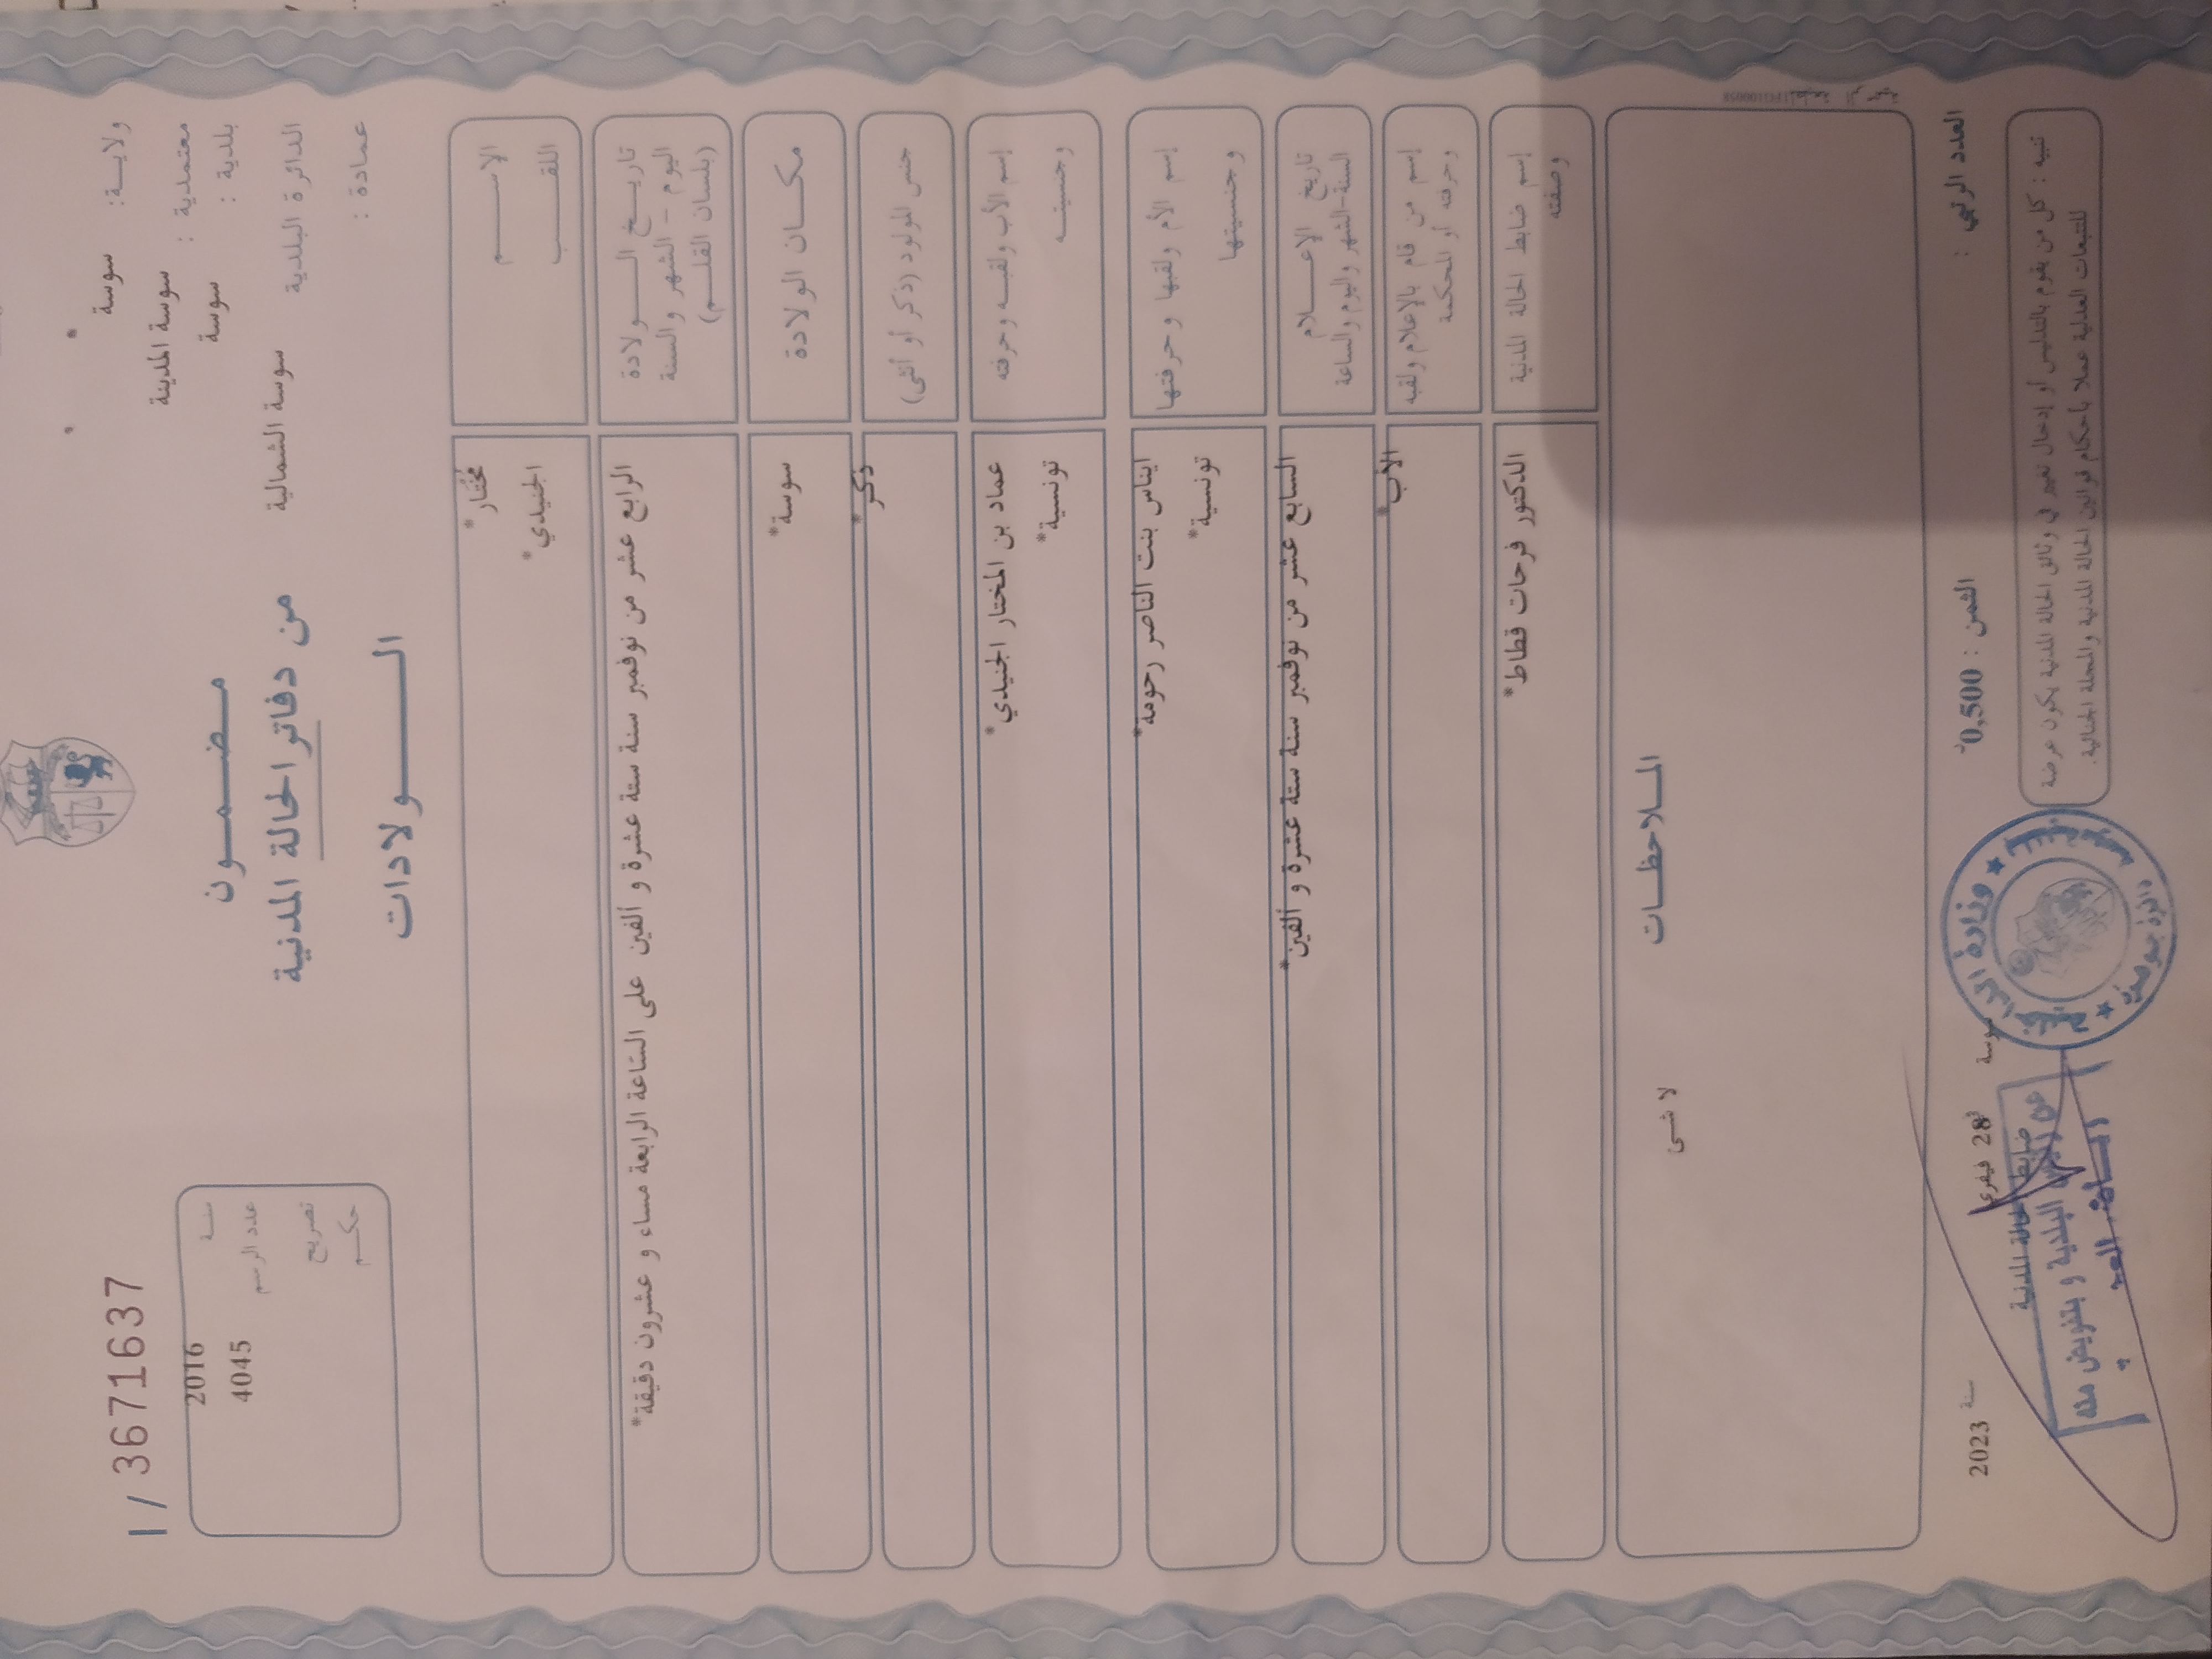 ولايـة: سوسة
معتمدية : سوسة المدينة
بلدية : سوسة
الدائرة البلدية سوسة الشمالية
عمادة :
مضمـــون
من دفاتر الحالة المدنية
الـــــولادات
I / 36716​37
سنـة 2016
عدد الرسم 4045
تصريح
حكـم
الإســـــم مُختار*
اللقـــــب الجنيدي*
تاريـــخ الـــــولادة
اليوم - الشهر والسنة
(بلسان القلـــم)
الرابع عشر من نوفمبر سنة ستة عشرة و ألفين على الساعة الرابعة مساء و عشرون دقيقة*
مكـــان الولادة سوسة*
جنس المولود (ذكر أو أنثى) ذكر*
إسم الأب ولقبـه وحرفته عماد بن المختار الجنيدي*
وجنسيتـــه تونسية*
إسم الأم ولقبها وحرفتها ايناس بنت الناصر رحومة*
وجنسيتها تونسية*
تاريخ الإعـــلام
السنة-الشهر واليوم والساعة
السابع عشر من نوفمبر سنة ستة عشرة و ألفين*
إسم من قام بالإعلام ولقبه
وحرفته أو المحكمة
الأب*
إسم ضابط الحالة المدنية
وصفته
الدكتور فرحات قطاط*
الملاحظـات
لا شيئ
العدد الرتبي :
الثمن : 0,500د
سوسة 28 فيفري سنة 2023
ضابط الحالة المدنية
تنبيه : كل من يقوم بالتدليس أو إدخال تغيير في وثائق الحالة المدنية يكون عرضة
للتتبعات العدلية عملا بأحكام قوانين الحالة المدنية والمجلة الجنائية.
عن رئيس البلدية و بتفويض منه